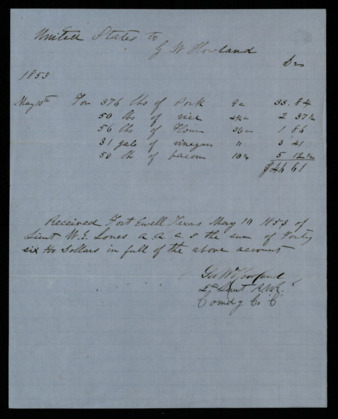 United States to
G W Howland
Drs
1853
May 10th For 376 lbs of Pork 9c 33.84
50 lbs of rice 2 37½
56 lbs of flour 1 86
31 gals of vinegar 11 3 41
50 lbs of bacon 10¼ 5 12½
$46 61
Received Fort Ewell Texas May 10 1853 of
Lieut W. E. Jones a a c s the sum of Forty
six Dollars in full of the above account
Geo W Howland
2d Lieut R.M.R.
Comdg Co "C"